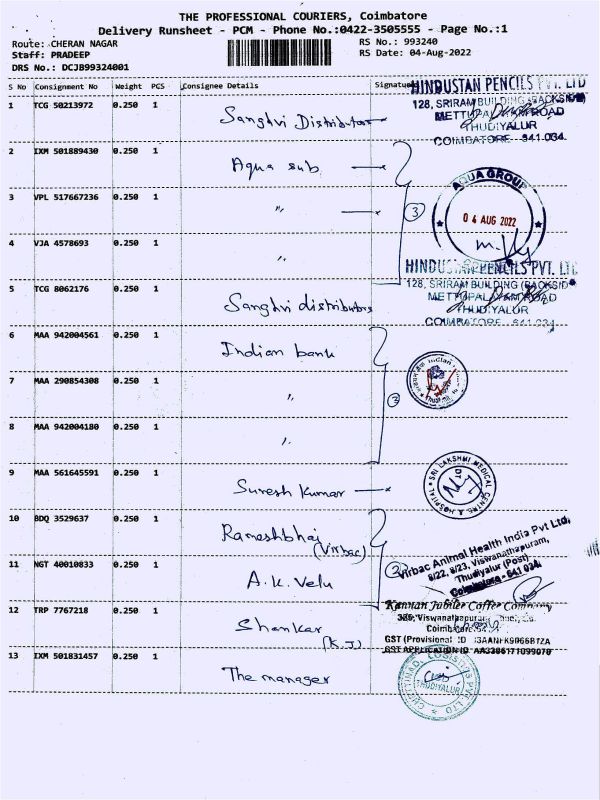 THE PROFESSIONAL COURIERS, Coimbatore
Delivery Runsheet - PCM - Phone No.:0422-3505555 - Page No.:1
Route: CHERAN NAGAR
RS No.: 993240
Staff: PRADEEP
RS Date: 04-Aug-2022
DRS No.: DCJB99324001
S No Consignment No Weight PCS Consignee Details Signature
HINDUSTAN PENCILS PVT. LTD
128, SRIRAM BUILDING (BACKSIDE
METTUPALAYAM ROAD
THUDIYALUR
COIMBATORE - 641 034.
1 TCG 50213972 0.250 1 Sanghvi Distributors
2 IXM 501889430 0.250 1 Aqua sub
AQUA GROUP
04 AUG 2022
3 VPL 517667236 0.250 1 "
3
4 VJA 4578693 0.250 1 "
HINDUSTAN PENCILS PVT. LTD
128, SRIRAM BUILDING (BACKSID
METTUPALAYAM ROAD
THUDIYALUR
COIMBATORE - 641 034
5 TCG 8062176 0.250 1 Sanghvi distributors
6 MAA 942004561 0.250 1 Indian bank
7 MAA 290854308 0.250 1 "
Indian
3
8 MAA 942004180 0.250 1 "
9 MAA 561645591 0.250 1 Suresh Kumar
SRI LAKSHMI MEDICAL CENTRE & HOSPITAL
10 BDQ 3529637 0.250 1 Rameshbhai
(Virbac)
Virbac Animal Health India Pvt Ltd,
8/22, 8/23, Viswanathapuram,
Thudiyalur (Post)
Coimbatore - 641 034.
11 NGT 40010833 0.250 1 A.K. Velu
12 TRP 7767218 0.250 1 Shankar
(K.J)
Kannan Jubilee Coffee Company
Viswanathapuram,
Coimbatore
GST (Provisional ID
GST APPLICATION ID AA3306171099070
13 IXM 501831457 0.250 1 The manager
CHETTINAD LOGISTICS PVT LTD
THUDIYALUR